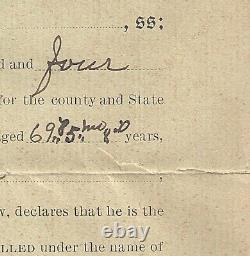 , ss:
d and four
for the county and State
ged 69 years,
w, declares that he is the
LLED under the name of